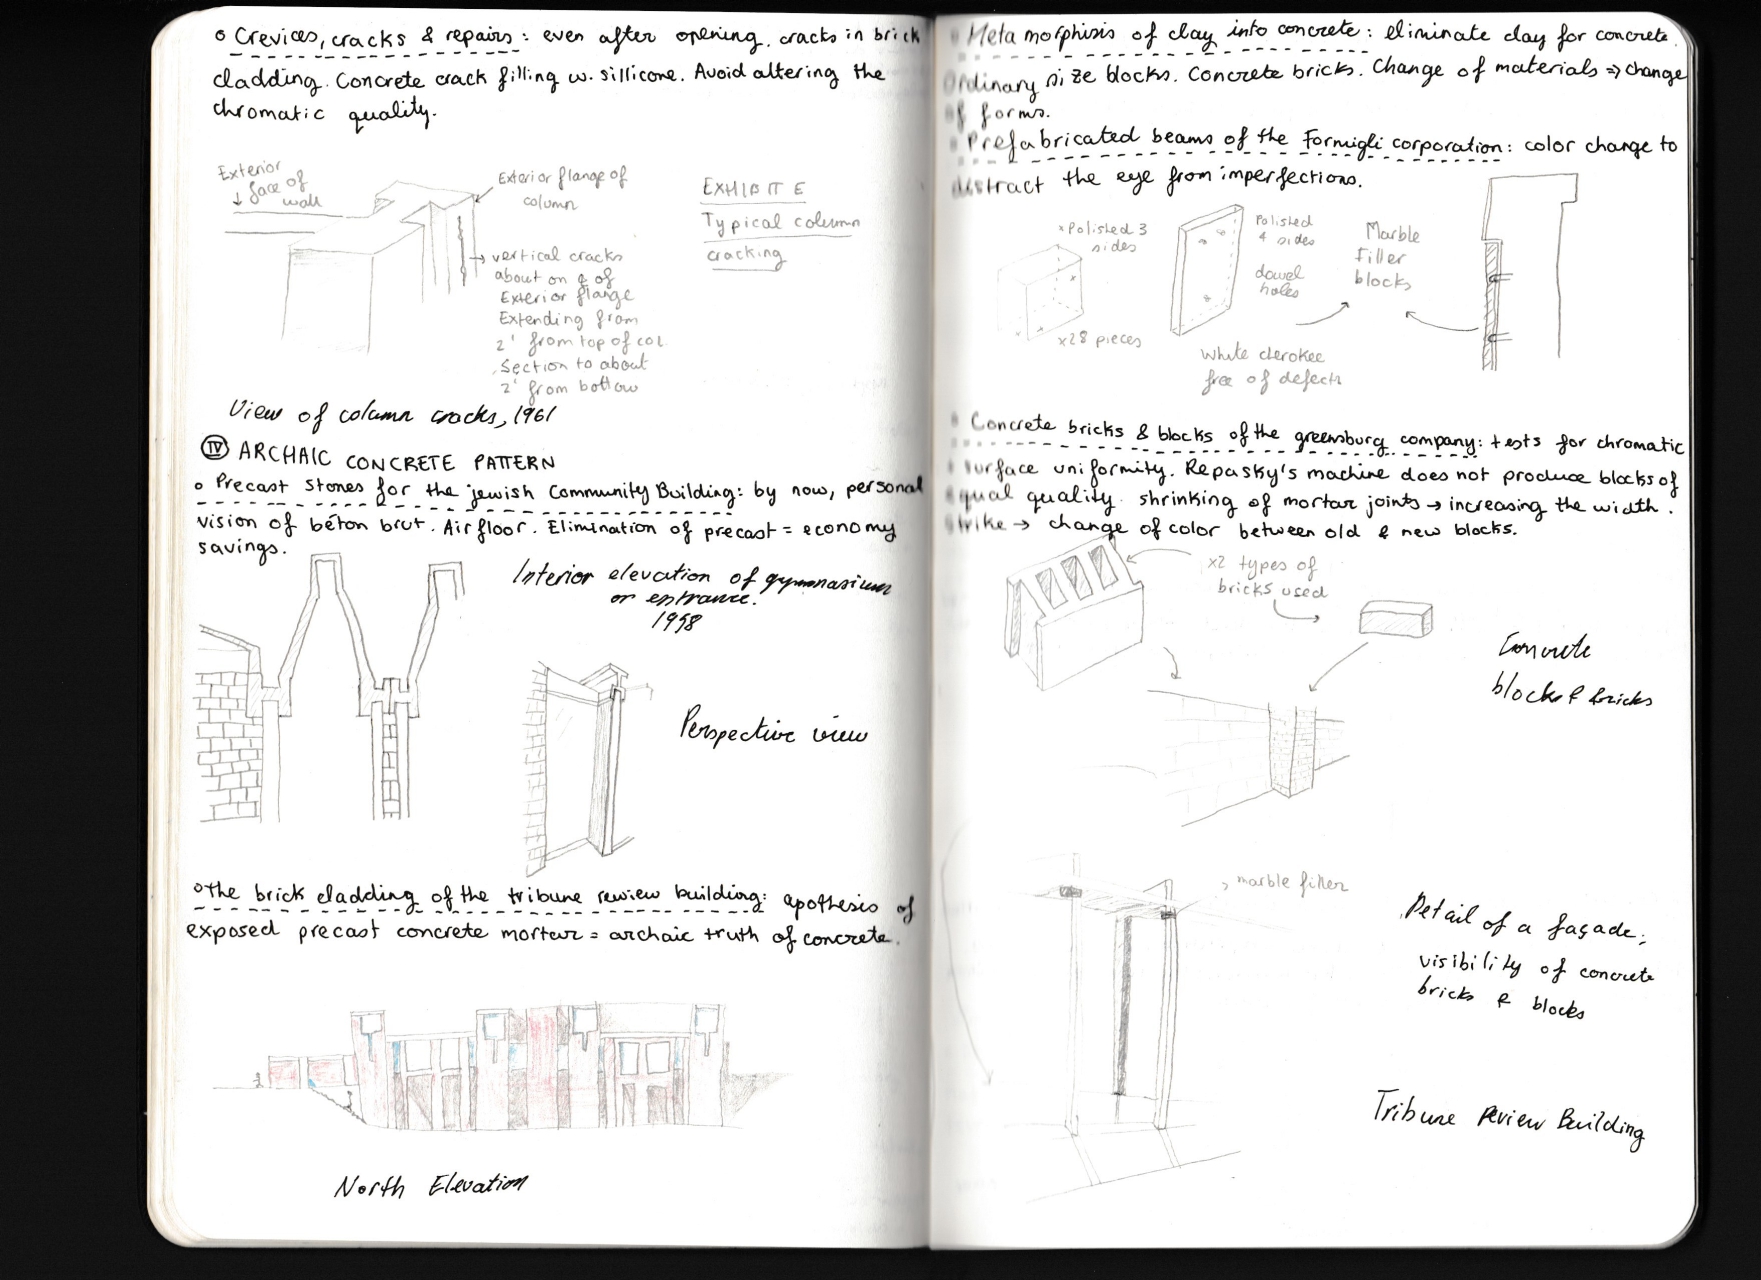 Crevices, cracks & repairs : even after opening. cracks in brick
cladding. Concrete crack filling w. sillicone. Avoid altering the
chromatic quality.
Exterior
↓ face of
wall
Exterior flange of
column
→ vertical cracks
about on ¢ of
Exterior flange
Extending from
2' from top of col.
Section to about
2' from bottow
EXHIBIT E
Typical column
cracking
View of column cracks, 1961
IV ARCHAIC CONCRETE PATTERN
Precast stones for the jewish Community Building: by now, personal
vision of béton brut. Air floor. Elimination of precast = economy
savings.
Interior elevation of gymnasium
or entrance.
1958
Perspective view
The brick cladding of the tribune review building: apothesis of
exposed precast concrete mortar = archaic truth of concrete.
North Elevation
Metamorphisis of clay into concrete : eliminate clay for concrete.
Ordinary size blocks. Concrete bricks. Change of materials => change
of forms.
Prefabricated beams of the Formigli corporation: color change to
distract the eye from imperfections.
×Polished 3
sides
×28 pieces
Polished
4 sides
dowel
holes
Marble
Filler
blocks
White cherokee
free of defects
Concrete bricks & blocks of the greensburg company: tests for chromatic
surface uniformity. Repasky's machine does not produce blocks of
equal quality. shrinking of mortar joints → increasing the width.
strike → change of color between old & new blocks.
x2 types of
bricks used
Concrete
blocks & bricks
marble filler
Detail of a façade;
visibility of concrete
bricks & blocks
Tribune Review Building